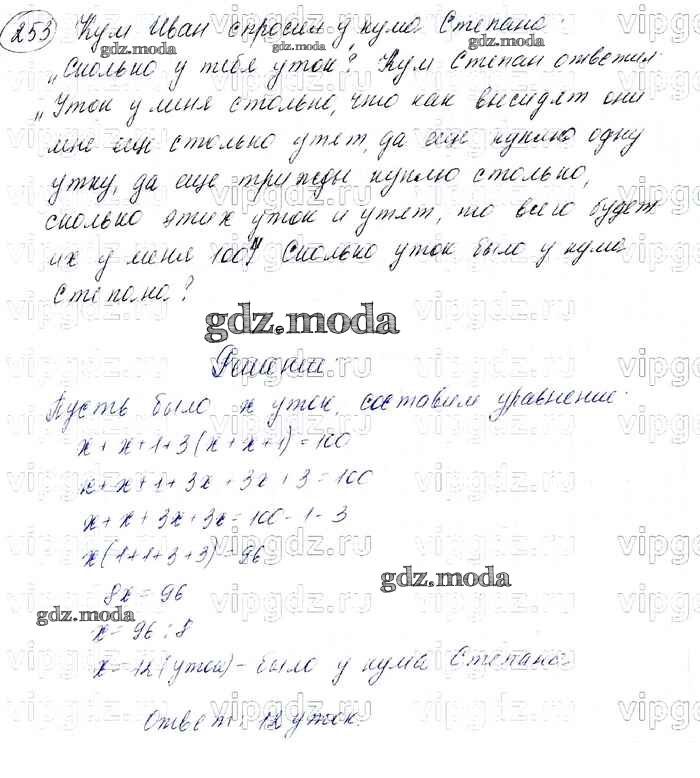 253 Кум Иван спросил у кума Степана:
gdz.moda gdz.moda
„Сколько у тебя уток? Кум Степан ответил:
„Уток у меня столько, что как высидят они
мне ещё столько утят, да ещё куплю одну
утку, да еще трижды куплю столько,
сколько этих уток и утят, то всего будет
их у меня 100" Сколько уток было у кума
Степана?
gdz.moda
Решение
Пусть было x уток, составим уравнение:
x + x + 1 + 3(x + x + 1) = 100
x + x + 1 + 3x + 3x + 3 = 100
x + x + 3x + 3x = 100 - 1 - 3
x(1+1+3+3) = 96
gdz.moda
8x = 96
gdz.moda
x = 96 : 8
x = 12 (уток) - было у кума Степана
Ответ: 12 уток.
vipgdz.ru